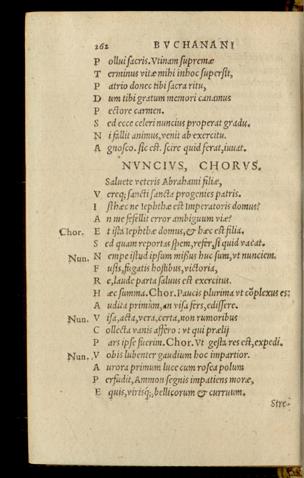 262 BVCHANANI
Pollui sacris. Vtinam supremæ
Terminus vitæ mihi hoc supersit,
Patrio donec tibi sacra ritu,
Dum tibi gratum memori canamus
Pectore carmen.
Sed ecce celeri nuncius properat gradu.
Ni fallit animus, venit ab exercitu.
Agnosco. sic est. scire quid ferat, iuuat.
NVNCIVS, CHORVS.
Saluete veteris Abrahami filiæ,
Veræq; sancti sancta progenies patris.
Isthæc ne Iephthæ est imperatoris domus?
An me fefellit error ambiguum viæ?
Chor. Et ista Iephthæ domus, & hæc est filia.
Sed quam reportas spem, refer, si quid vacat.
Nun. Nempe istud ipsum missus huc sum, vt nunciem.
Fusis, fugatis hostibus, victoria,
Re, laude parta saluus est exercitus.
Hæc summa. Chor. Paucis plurima vt cõplexus es:
Audita primùm, an visa fers, edissere.
Nun. Visa, acta, vera, certa, non rumoribus
Collecta vanis affero: vt qui prælij
Pars ipse fuerim. Chor. Vt gesta res est, expedi.
Nun. Vobis lubenter gaudium hoc impartior.
Aurora primum luce cum rosea polum
Perfudit, Ammon segnis impatiens moræ,
Equis, virisq; bellicorum & curruum.
Stre-